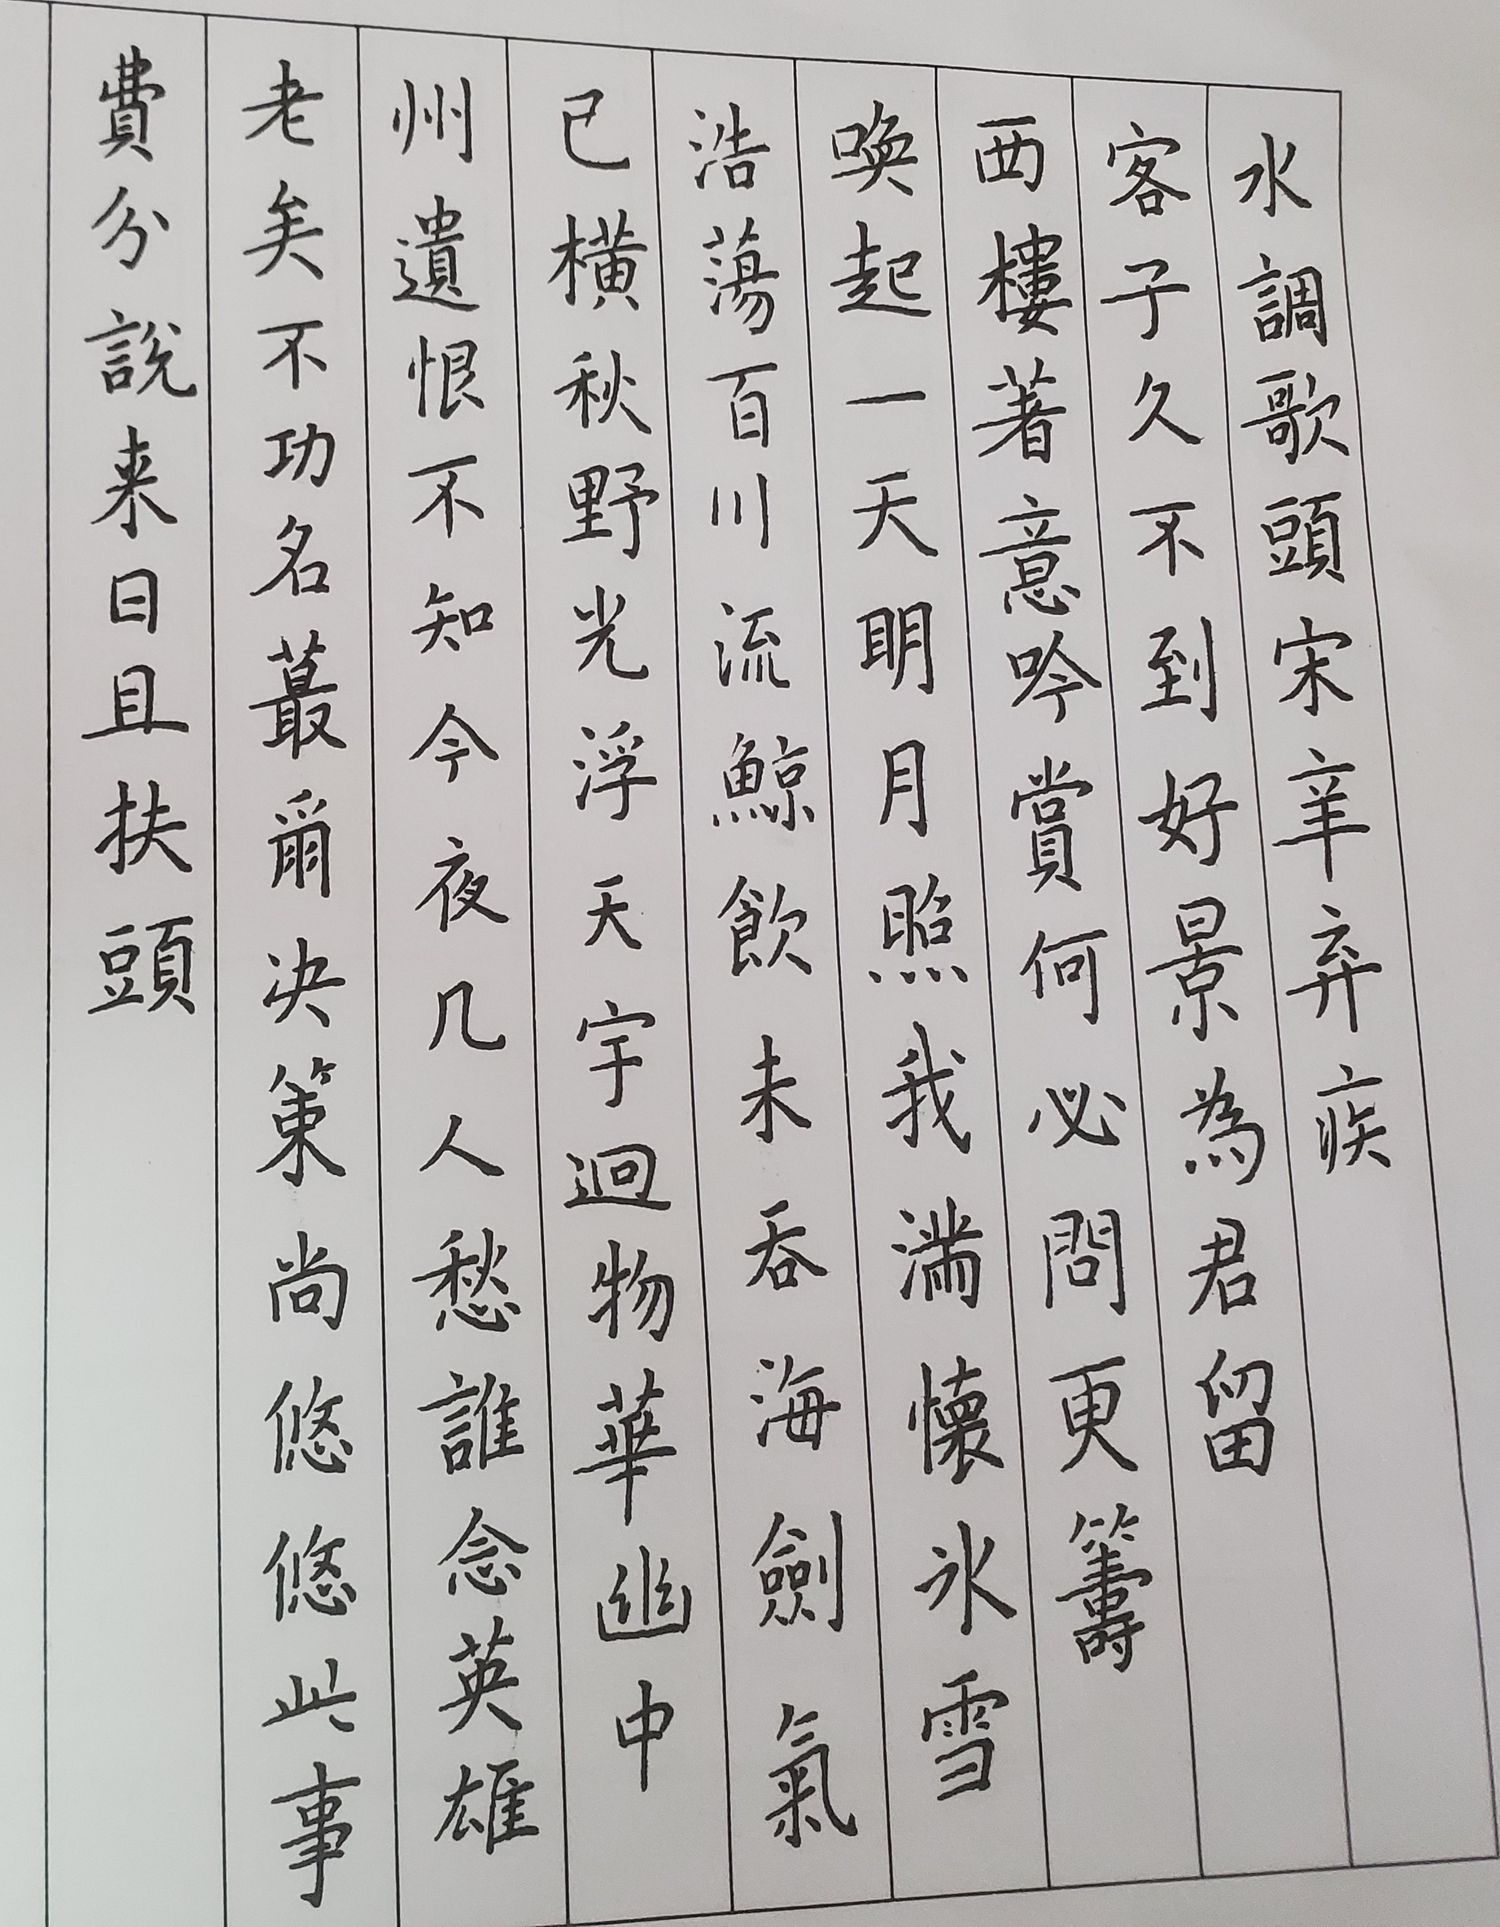 水調歌頭宋辛弃疾
客子久不到好景為君留
西樓著意吟賞何必問更籌
喚起一天明月照我滿懷冰雪
浩蕩百川流鯨飲未吞海劍氣
已橫秋野光浮天宇迥物華幽中
州遺恨不知今夜几人愁誰念英雄
老矣不功名蕞爾决策尚悠悠此事
費分説来日且扶頭